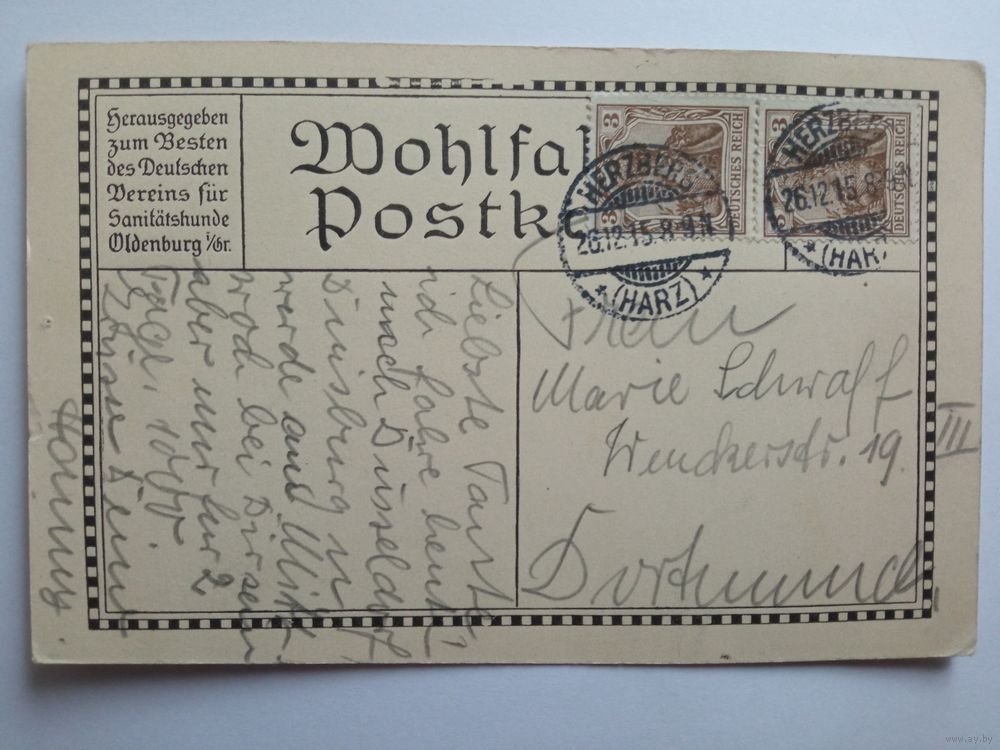 Herausgegeben
zum Besten
des Deutschen
Vereins für
Sanitätshunde
Oldenburg i/Gr.
Wohlfa
Postk
3
3
DEUTSCHES REICH
3
DEUTSCHES REICH
HERZBERG
26.12.15.8-9N
* (HARZ) *
HERZBE
26.12.15.8-9
* (HARZ
Liebste Tante!
ich fahre heute
nach Düsseldorf,
Duisburg u
werde am
bei Dir sein
aber nur für 2
Tage.
Grüsse Deine
Hanny.
Frau
Marie Schwalf
Wenckerstr. 19. III
Dortmund
www.ay.by